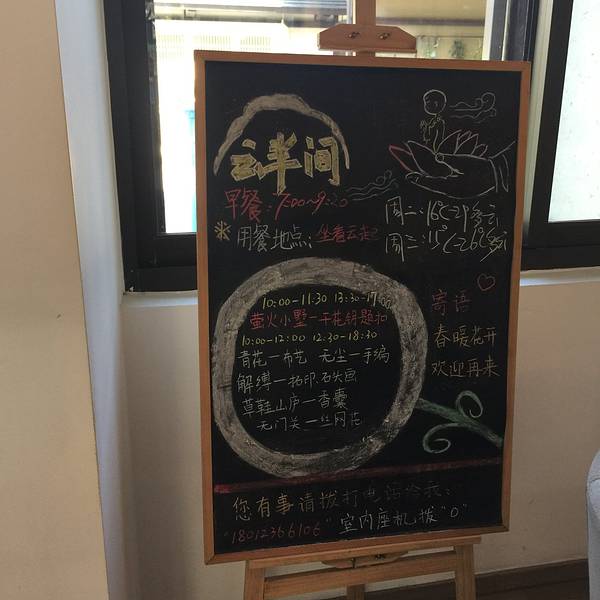 云半间
早餐:7:00~9:20
用餐地点:坐看云起
周二:16℃~29 多云
周三:15℃~26℃多云
10:00-11:30 13:30-17:00
萤火小墅一干花钥匙扣
10:00-12:00 12:30-18:30
青花一布艺 无尘一手编
解缚一拓印.石头画
草鞋山庐一香囊
无门关一丝网花
寄语
春暖花开
欢迎再来
您有事请拨打电话给我:
"18012366106" 室内座机拨"0"